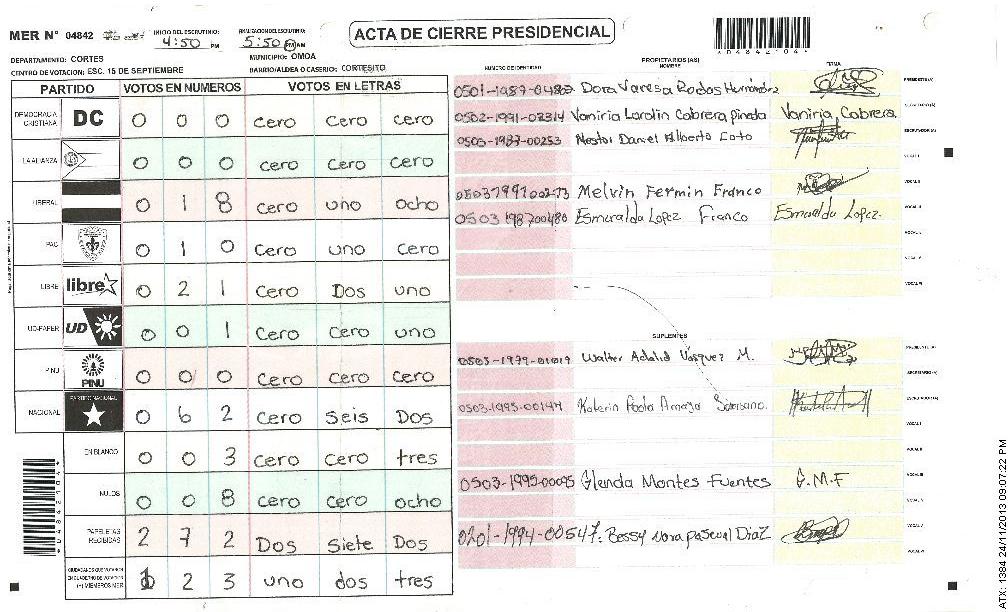 MER N° 04842
INICIO DEL ESCRUTINIO:
4:50 PM
FINALIZACION DEL ESCRUTINIO:
5:50 PM AM
ACTA DE CIERRE PRESIDENCIAL
DEPARTAMENTO: CORTES
MUNICIPIO: OMOA
CENTRO DE VOTACION: ESC. 15 DE SEPTIEMBRE
BARRIO/ALDEA O CASERIO: CORTESITO
PARTIDO VOTOS EN NUMEROS VOTOS EN LETRAS
DEMOCRACIA CRISTIANA DC 0 0 0 cero cero cero
LA ALIANZA 0 0 0 cero cero cero
LIBERAL 0 1 8 cero uno ocho
PAC 0 1 0 cero uno cero
LIBRE libre 0 2 1 cero Dos uno
UD-FAPER UD 0 0 1 cero cero uno
PINU PINU 0 0 0 cero cero cero
NACIONAL PARTIDO NACIONAL 0 6 2 cero seis Dos
EN BLANCO 0 0 3 cero cero tres
NULOS 0 0 8 cero cero ocho
PAPELETAS RECIBIDAS 2 7 2 Dos siete Dos
CIUDADANOS QUE VOTARON EN CUADERNO DE VOTACION (+) MIEMBROS MER 1 2 3 uno dos tres
NUMERO DE IDENTIDAD
PROPIETARIOS (AS)
NOMBRE
FIRMA
Dora Varesa Rodas Hernández
PRESIDENTE (A)
0502-1991-02314 Vaniria Larolin Cabrera Pineda Vaniria Cabrera
SECRETARIO (A)
0503-1987-00253 Nestor Daniel Alberto Coto
ESCRUTADOR (A)
VOCAL I
Melvin Fermin Franco
VOCAL II
0503 198700480 Esmeralda Lopez Franco Esmeralda Lopez.
VOCAL III
VOCAL IV
VOCAL V
VOCAL VI
SUPLENTES
0503-1979-01019 Walter Adalid Vásquez M.
PRESIDENTE (A)
SECRETARIO (A)
0503-1995-00144 Katerin Paola Amaya
ESCRUTADOR (A)
VOCAL I
VOCAL II
0503-1995-00095 Glenda Montes Fuentes G.M.F
VOCAL III
VOCAL IV
0201-1994-00547. Bessy Nora pascual Diaz
VOCAL V
VOCAL VI
*04842104*
ATX: 1384 24/11/2013 09:07:22 PM